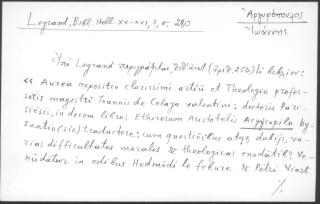 Legrand, Bibl. Hell. XV-XVI, 3, σ. 280
Ἀργυρόπουλος
Ἰωάννης
Ὑπὸ Legrand περιγράφεται,
« Aurea expositio clarissimi artiũ et Theologie profes-
soris magistri Joannis de Celaya valentini: doctoris Pari-
siẽsis, in decem libros Ethicorum Aristotelis Argyropilo by-
santio (sic) traductore; cum questiõibus atq3 dubijs, va-
rias difficultates morales & theologicas enodãtib9 Ve-
nũdatur in edibus Hedmõdi le febure & Petri Viart
·/.